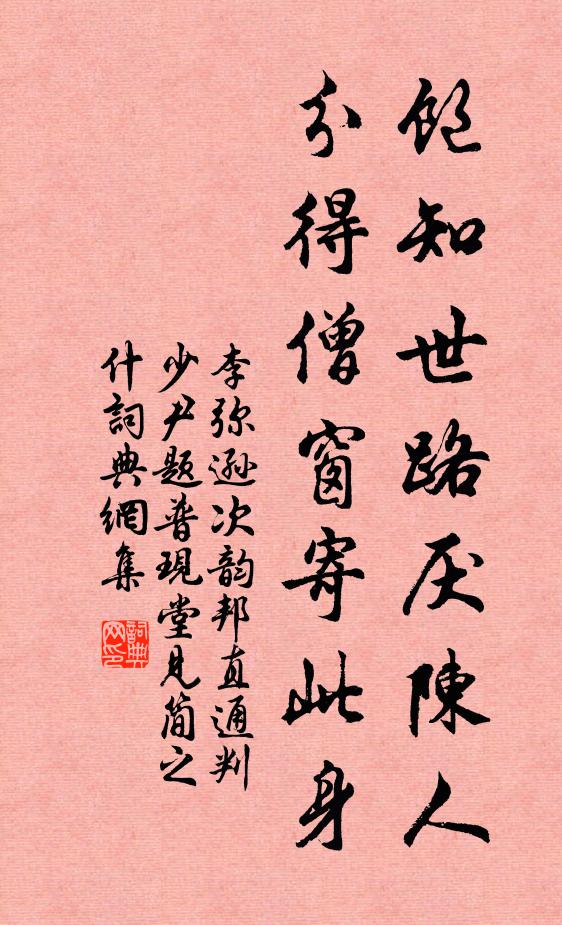 飽知世路厌陳人
分得僧窗寄此身
李弥遜次韵邦直通判
少尹题普現堂見简之
什詞典網集
詞典网印